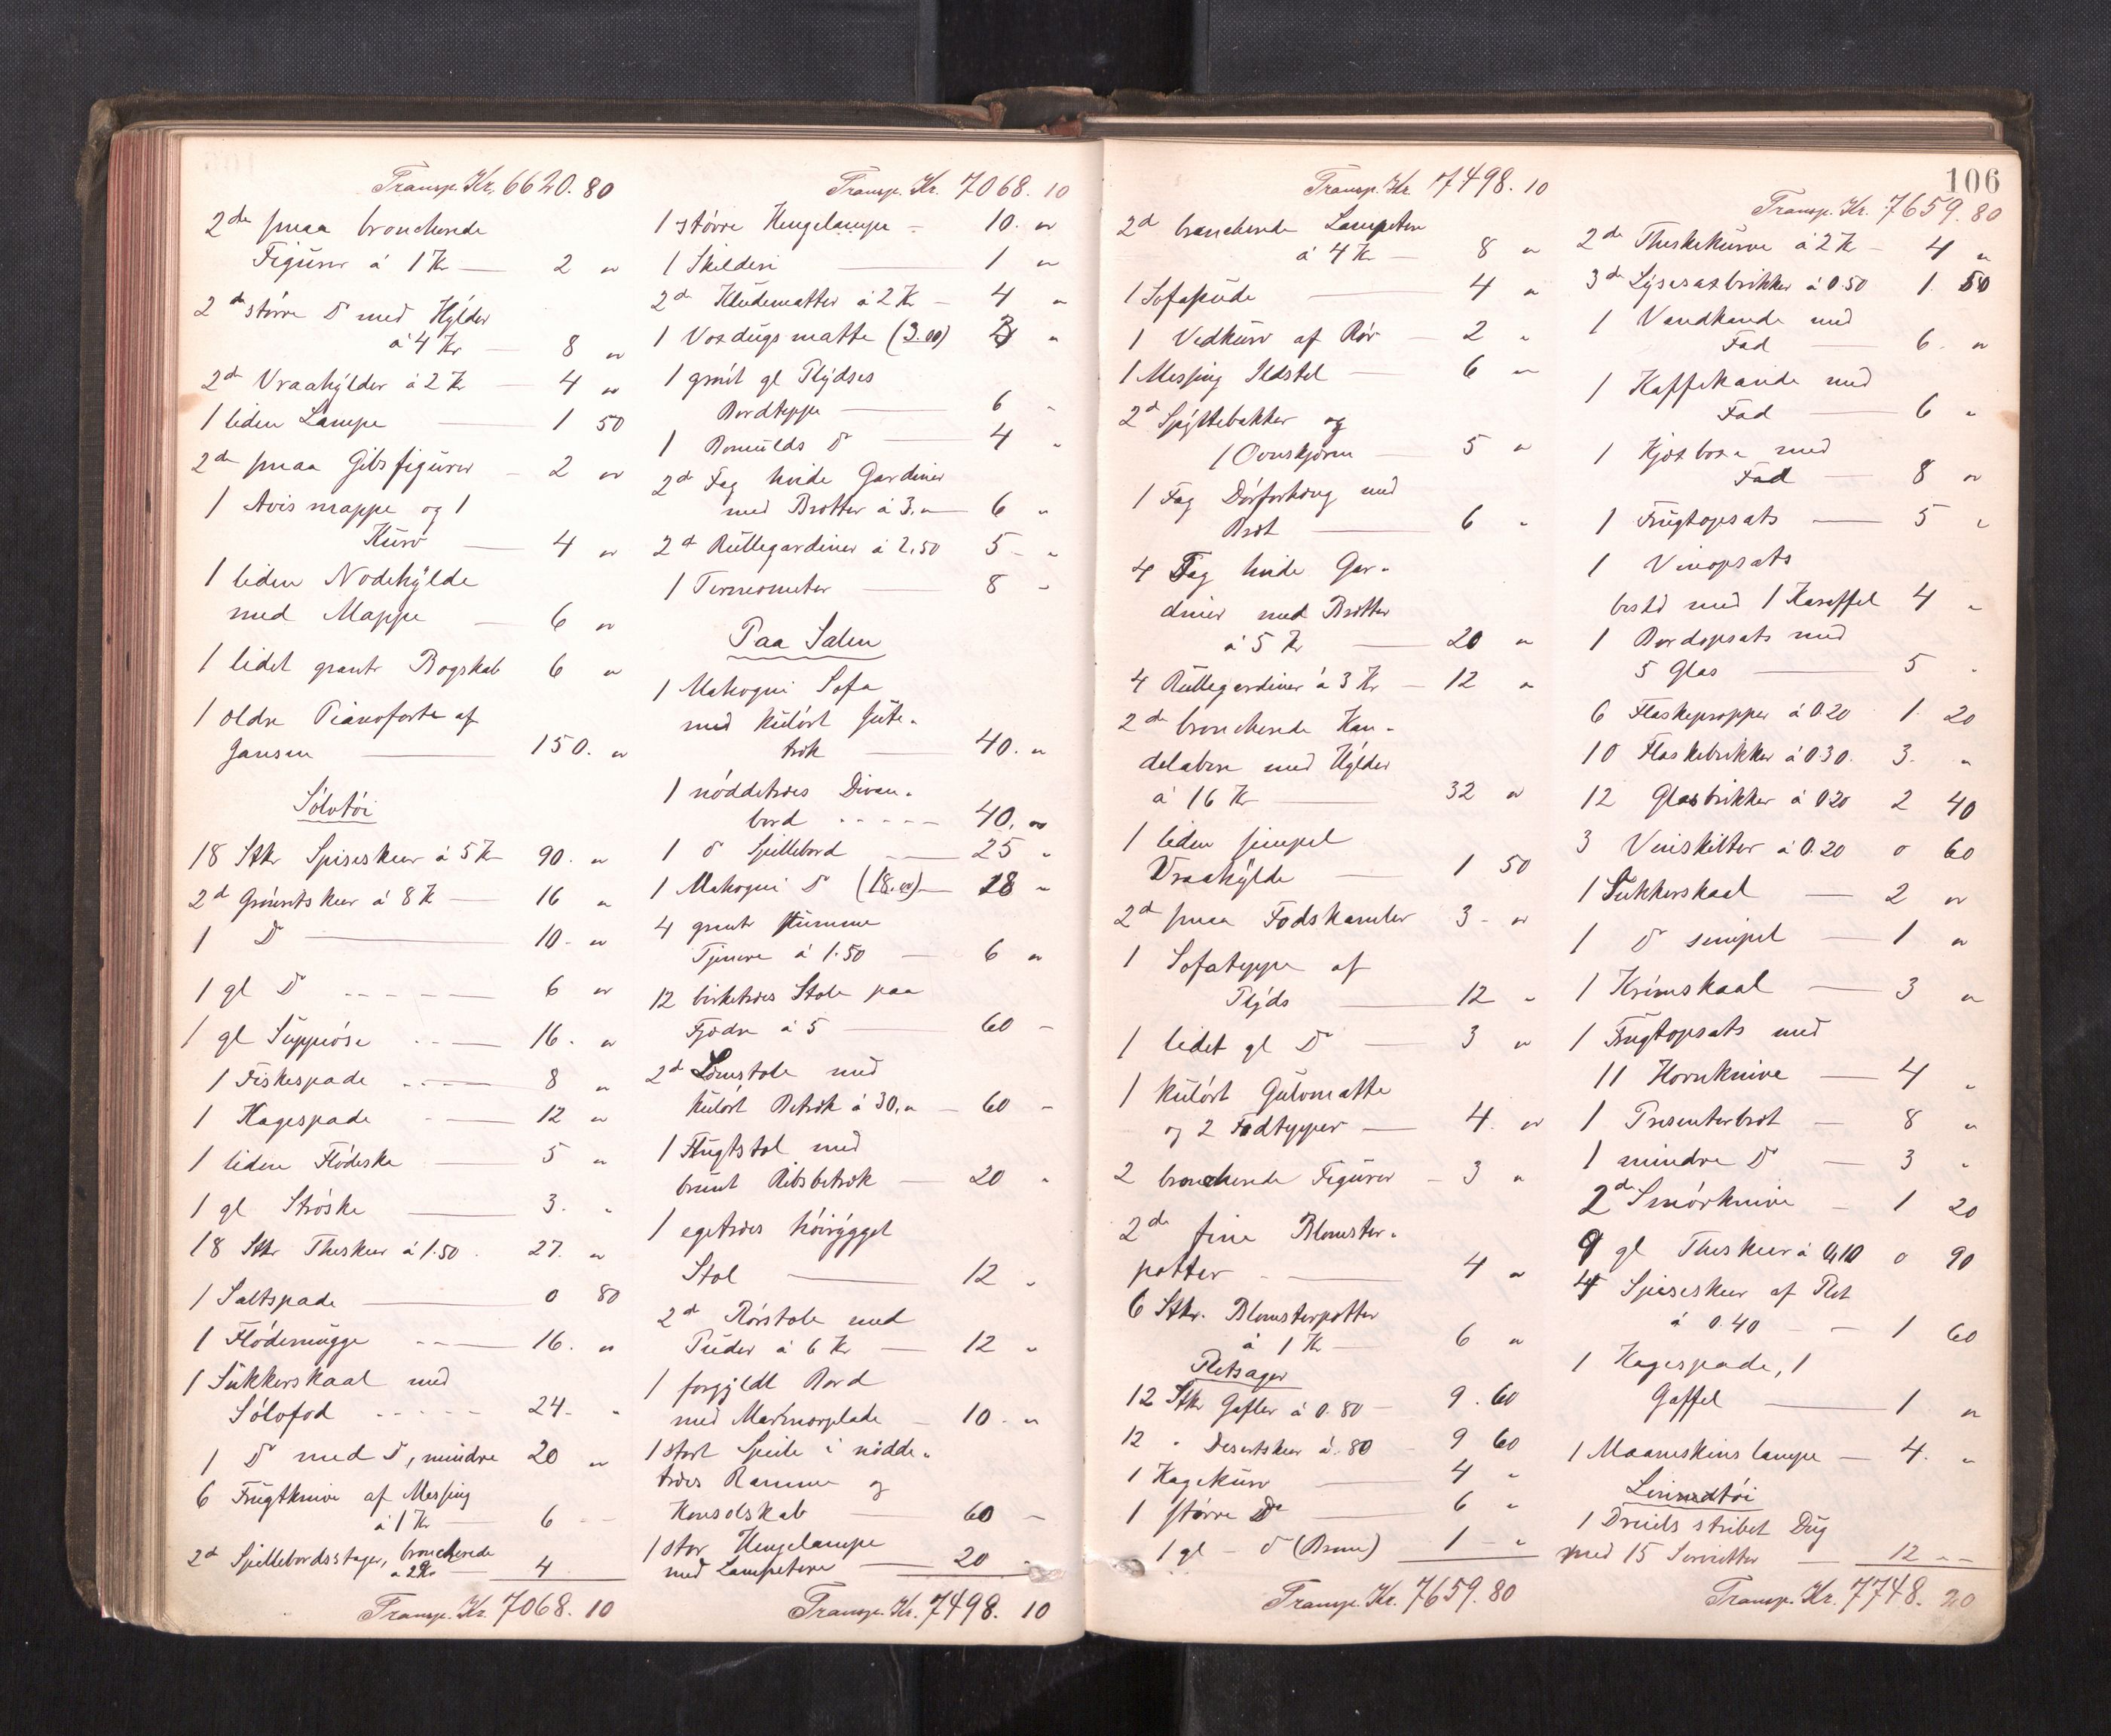 Transp. Kr. 6620. 80
2de smaa broncherede
Figurer á 1 Kr — 2 "
2de större D° med Hylder
á 4 Kr — 8 "
2de Vraahylder á 2 Kr — 4 "
1 liden Lampe — 1 50
2de smaa Gibsfigurer — 2 "
1 Avismappe og 1
Kurv — 4 "
1 liden Nodehylde
med Mappe — 6 "
1 lidet grantr Bogskab 6 "
1 ældre Pianoforte af
Jansen — 150. "
Sölvtöi
18 Stkr Spiseskeer á 5 Kr 90. "
2de Grönsskeer á 8 K — 16 "
1 D° — 10. "
1 gl D° — 6 "
1 gl Suppeöse — 16. "
1 Fiskespade — 8 "
1 Kagespade — 12 "
1 liden Flödeske — 5 "
1 gl Ströske — 3. "
18 Stkr Theskeer á 1.50. 27. "
1 Saltspade — 0 80
1 Flödemugge — 16. "
1 Sukkerskaal med
Sölvfod — 24. "
1 D° med D°, mindre 20 "
6 Frugtknive af Messing
á 1 Kr — 6 "
2de Spillebordsstager, broncherede
á 2 Kr — 4
Transp. Kr. 7068. 10
Transp. Kr. 7068. 10
1 större Hengelampe — 10. "
1 Skilderi — 1 "
2de Kludematter á 2 Kr — 4 "
1 Voxdugsmatte (3.00) 3 "
1 grönt gl Plydses
Bordteppe — 6 "
1 Bomulds D° — 4 "
2de Fag hvide Gardiner
med Bretter á 3." — 6 "
2de Rullegardiner á 2,50 5 — "
1 Termometer — 8 "
Paa Salen
1 Mahogni Sofa
med kulört Jute-
træk — 40. "
1 nöddetræs Divan-
bord — 40. "
1 D° Spillebord — 25 "
1 Mahogni D° (18.00) — 18 "
4 grantr stumme
Tjenere á 1.50 — 6 "
12 birketræs Stole paa
Fjædre á 5 — 60 —
2de Lænstole med
kulört Betræk á 30." — 60 —
1 Flugtstol med
brunt Ribsbetræk — 20 "
1 egetræs höirygget
Stol — 12 "
2de Rörstole med
Puder á 6 Kr — 12 "
1 forgyldt Bord
med Marmorplade — 10. "
1 stort Speile i nödde-
træs Ramme og
Konsolskab — 60 —
1 stor Hengelampe
med Lampetere — 20 "
Transp. Kr. 7498. 10
Transp. Kr. 7498. 10
2de broncherede Lampetere
á 4 Kr — 8 "
1 Sofapude — 4 "
1 Vedkurv af Rör — 2 "
1 Messing Ildstel — 6 "
2de Spyttebakker og
1 Ovnskjerm — 5 "
1 Fag Dörforheng med
Bret — 6 "
4 Fag hvide Gar-
diner med Bretter
á 5 Kr — 20 "
4 Rullegardiner á 3 Kr — 12 "
2de broncherede Kan-
delabere med Hylder
á 16 Kr — 32 "
1 liden simpel
Vraahylde — 1 50
2de smaa Fodskamler 3 — "
1 Sofateppe af
Plyds — 12 "
1 lidet gl D° — 3 "
1 kulört Gulvmatte
og 2 Fodtepper — 4. "
2 broncherede Figurer — 3 "
2de fine Blomster-
potter — 4 "
6 Stkr. Blomsterpotter
á 1 Kr — 6 "
Pletsager
12 Stkr Gafler á 0.80 — 9. 60
12 " Desertskeer á .80 — 9 60
1 Kagekurv — 4 "
1 större D° — 6 "
1 gl — D° — 1 — "
Transp. Kr. 7659. 80
106
Transp. Kr. 7659. 80
2de Theskekurve á 2 K — 4 "
3de Lysesaxbrikker á 0.50 1. 50
1 Vandkande med
Fad — 6. "
1 Kaffekande med
Fad — 6 "
1 Kjexboxe med
Fad — 8 "
1 Frugtopsats — 5 "
1 Vinopsats
best. med 1 Karaffel 4 "
1 Bordopsats med
5 Glas — 5 "
6 Flaskepropper á 0.20 1. 20
10 Flaskebrikker á 0.30. 3. "
12 Glasbrikker á 0.20 2 40
3 Vinskilter á 0.20 0 60
1 Sukkerskaal — 2 "
1 D° simpel — 1 "
1 Krémskaal — 3 "
1 Frugtopsats med
11 Hornknive — 4 "
1 Presenterbret — 8 "
1 mindre D° — 3 "
2de Smörknive — 1 20
9 gl Theskeer á 0,10 0 90
4 Spiseskeer af Plet
á 0.40 — 1 60
1 Kagespade, 1
Gaffel — 1 "
1 Maaneskinslampe — 4. "
Linnedtöi
1 Dreiels stribet Dug
med 15 Servietter — 12 "
Transp. Kr. 7748. 20